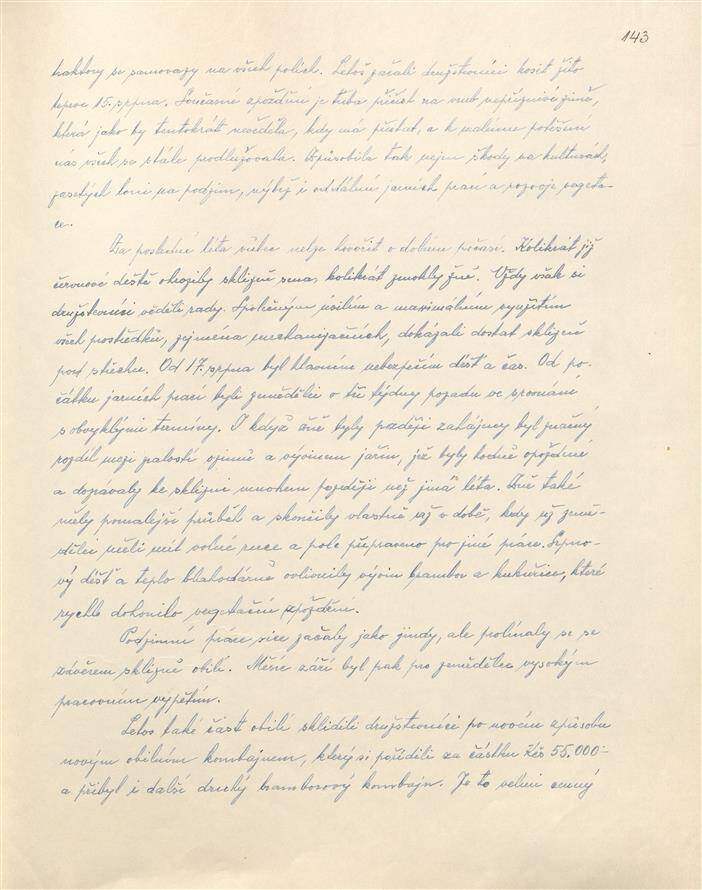 143
traktory se samovazy na všech polích. Letos začali družstevníci kosit žito
teprve 15. srpna. Současné zpoždění je třeba přičíst na vrub nepříznivé zimě,
která jako by tentokrát nevěděla, kdy má přestat, a k malému potěšení
nás všech se stále prodlužovala. Způsobila tak nejen škody na kulturách,
zasetých loni na podzim, nýbrž i oddálení jarních prací a rozvoje vegeta-
ce.
Za poslední léta vůbec nelze hovořit o dobrém počasí. Kolikrát již
červnové deště ohrozily sklizně sena, kolikrát zmokly žně. Vždy však si
družstevníci věděli rady. Společným úsilím a maximálním využitím
všech prostředků, zejména mechanizačních, dokázali dostat sklizeň
pod střechu. Od 17. srpna byl hlavním nebezpečím déšť a čas. Od po-
čátku jarních prací byli zemědělci o tři týdny pozadu ve srovnání
s obvyklými termíny. I když žně byly později zahájeny byl značný
rozdíl mezi zralostí ozimů a vývinem jařin, jež byly hodně opožděné
a dozrávaly ke sklizni mnohem později než jiná léta. Žně také
měly pomalejší průběh a skončily vlastně až v době, kdy už země-
dělci měli mít volné ruce a pole připraveno pro jiné práce. Srpno-
vý déšť a teplo blahodárně ovlivnily vývin brambor a kukuřice, které
rychle dohonilo vegetační zpoždění.
Podzimní práce sice začaly jako jindy, ale prolínaly se se
závěrem sklizně obilí. Měsíc září byl pak pro zemědělce vysokým
pracovním vypětím.
Letos také část obilí sklidili družstevníci po novém způsobu
novým obilním kombajnem, který si pořídili za částku Kčs 55.000.-
a přibyl i další druhý bramborový kombajn. Je to velmi cenný